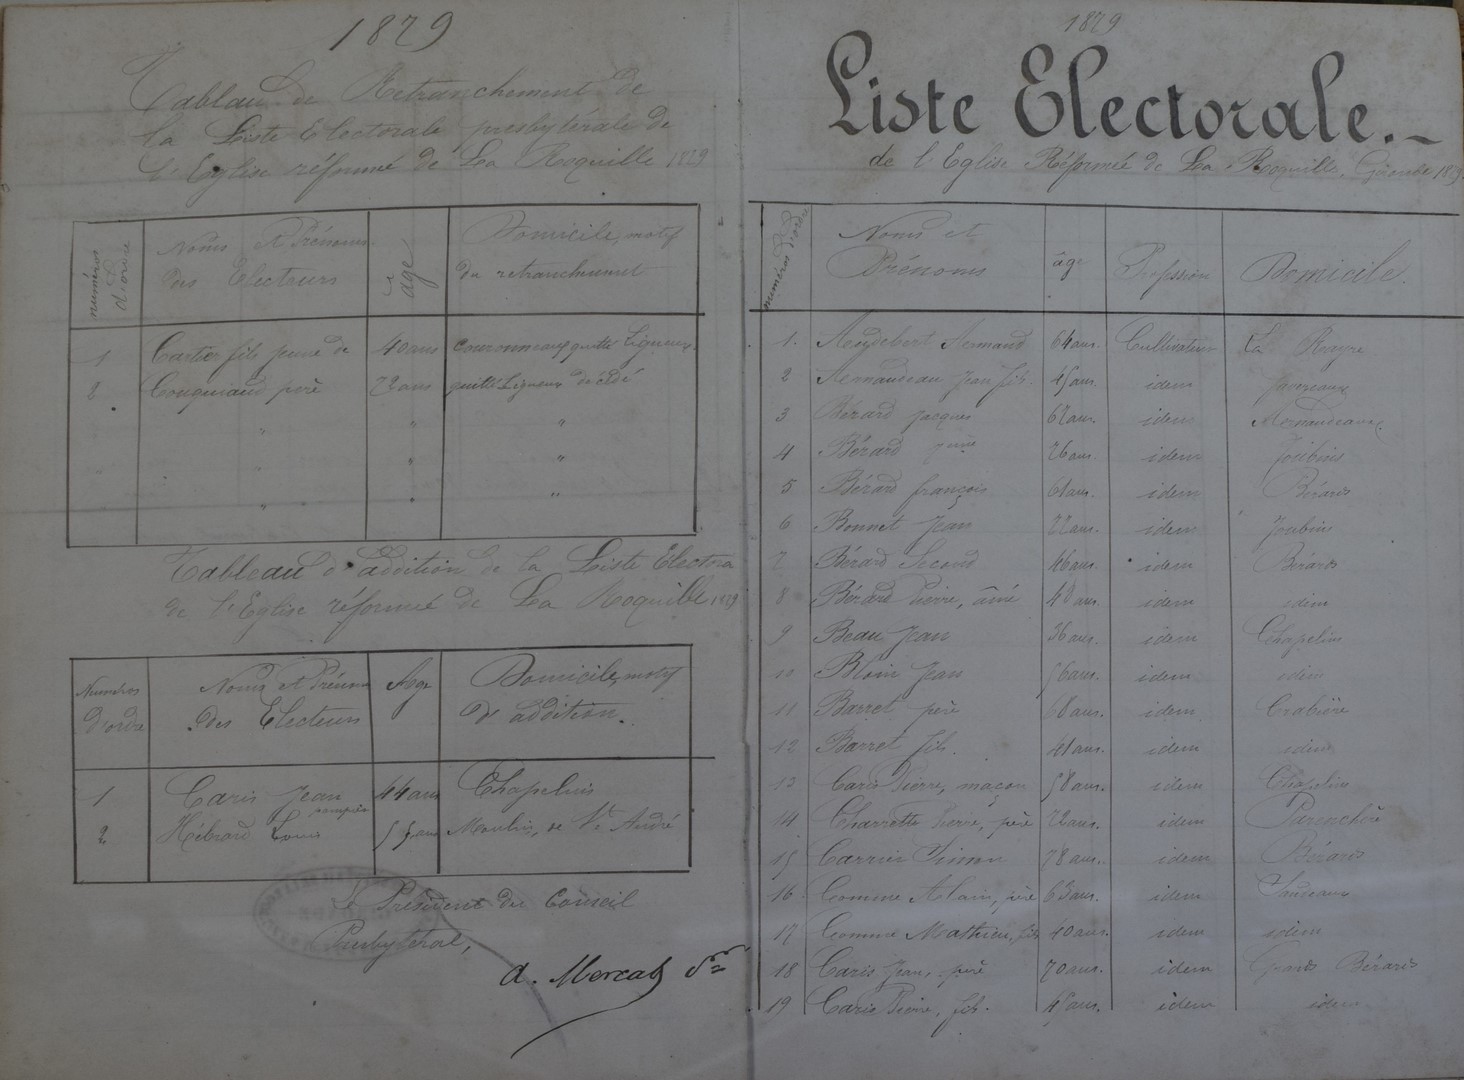 1879
Tableau de Retranchement de
la Liste Electorale presbytérale de
l'Eglise réformé de La Roquille 1879
numéros d'ordre
Noms et Prénoms
des Electeurs
âge
Domicile, motif
du retranchement
1 Cartier fils jeune de 40 ans quitté Ligueux
2 père 72 ans quitté Ligueux décédé
" " "
" " " "
" " "
Tableau d'addition de la Liste Electora
de l'Eglise réformé de La Roquille 1879
Numéros
d'ordre
Noms et Prénoms
des Electeurs
Age
Domicile, motif
d'addition.
1 Caris Jean 44 ans Chapelins
2 Hébrard Louis 55 ans Moulin, de St André
Le Président du Conseil
Presbytéral,
A. Mercat
1879
Liste Electorale.-
de l'Eglise Réformé de La Roquille, Gironde 1879.
numéros d'ordre
Noms et
Prénoms
âge
Profession
Domicile.
1. Heydebert Armand 64 ans. Cultivateur La
2 Arnaudeau Jean fils. 45 ans. idem Javereaux
3 Bérard Jacques 62 ans. idem Arnaudeaux
4 Bérard 26 ans. idem Joubins
5 Bérard françois 61 ans. idem Bérards
6 Bonnet Jean 22 ans. idem Joubins
7 Bérard Second 46 ans. idem Bérards
8 Bérard Pierre, âiné 40 ans. idem idem
9 Beau Jean 36 ans. idem Chapelins
10 Blouin Jean 56 ans. idem idem
11 Barret père 68 ans. idem Crabière
12 Barret fils. 41 ans. idem idem
13 Caris Pierre, maçon 58 ans. idem Chapelins
14 Charrette Pierre, père 72 ans. idem Parenchère
15 Carrier Simon 78 ans. idem Bérards
16. Comme père 63 ans. idem
17 Comme Mathieu, fils 40 ans. idem idem
18 Caris Jean, père 70 ans. idem Grands Bérards
19 Caris Pierre, fils. 45 ans. idem idem